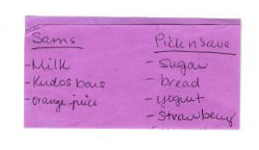 Sams
- Milk
- Kudos bars
- orange juice
Pick n save
- Sugar
- bread
- yogurt
- Strawberry